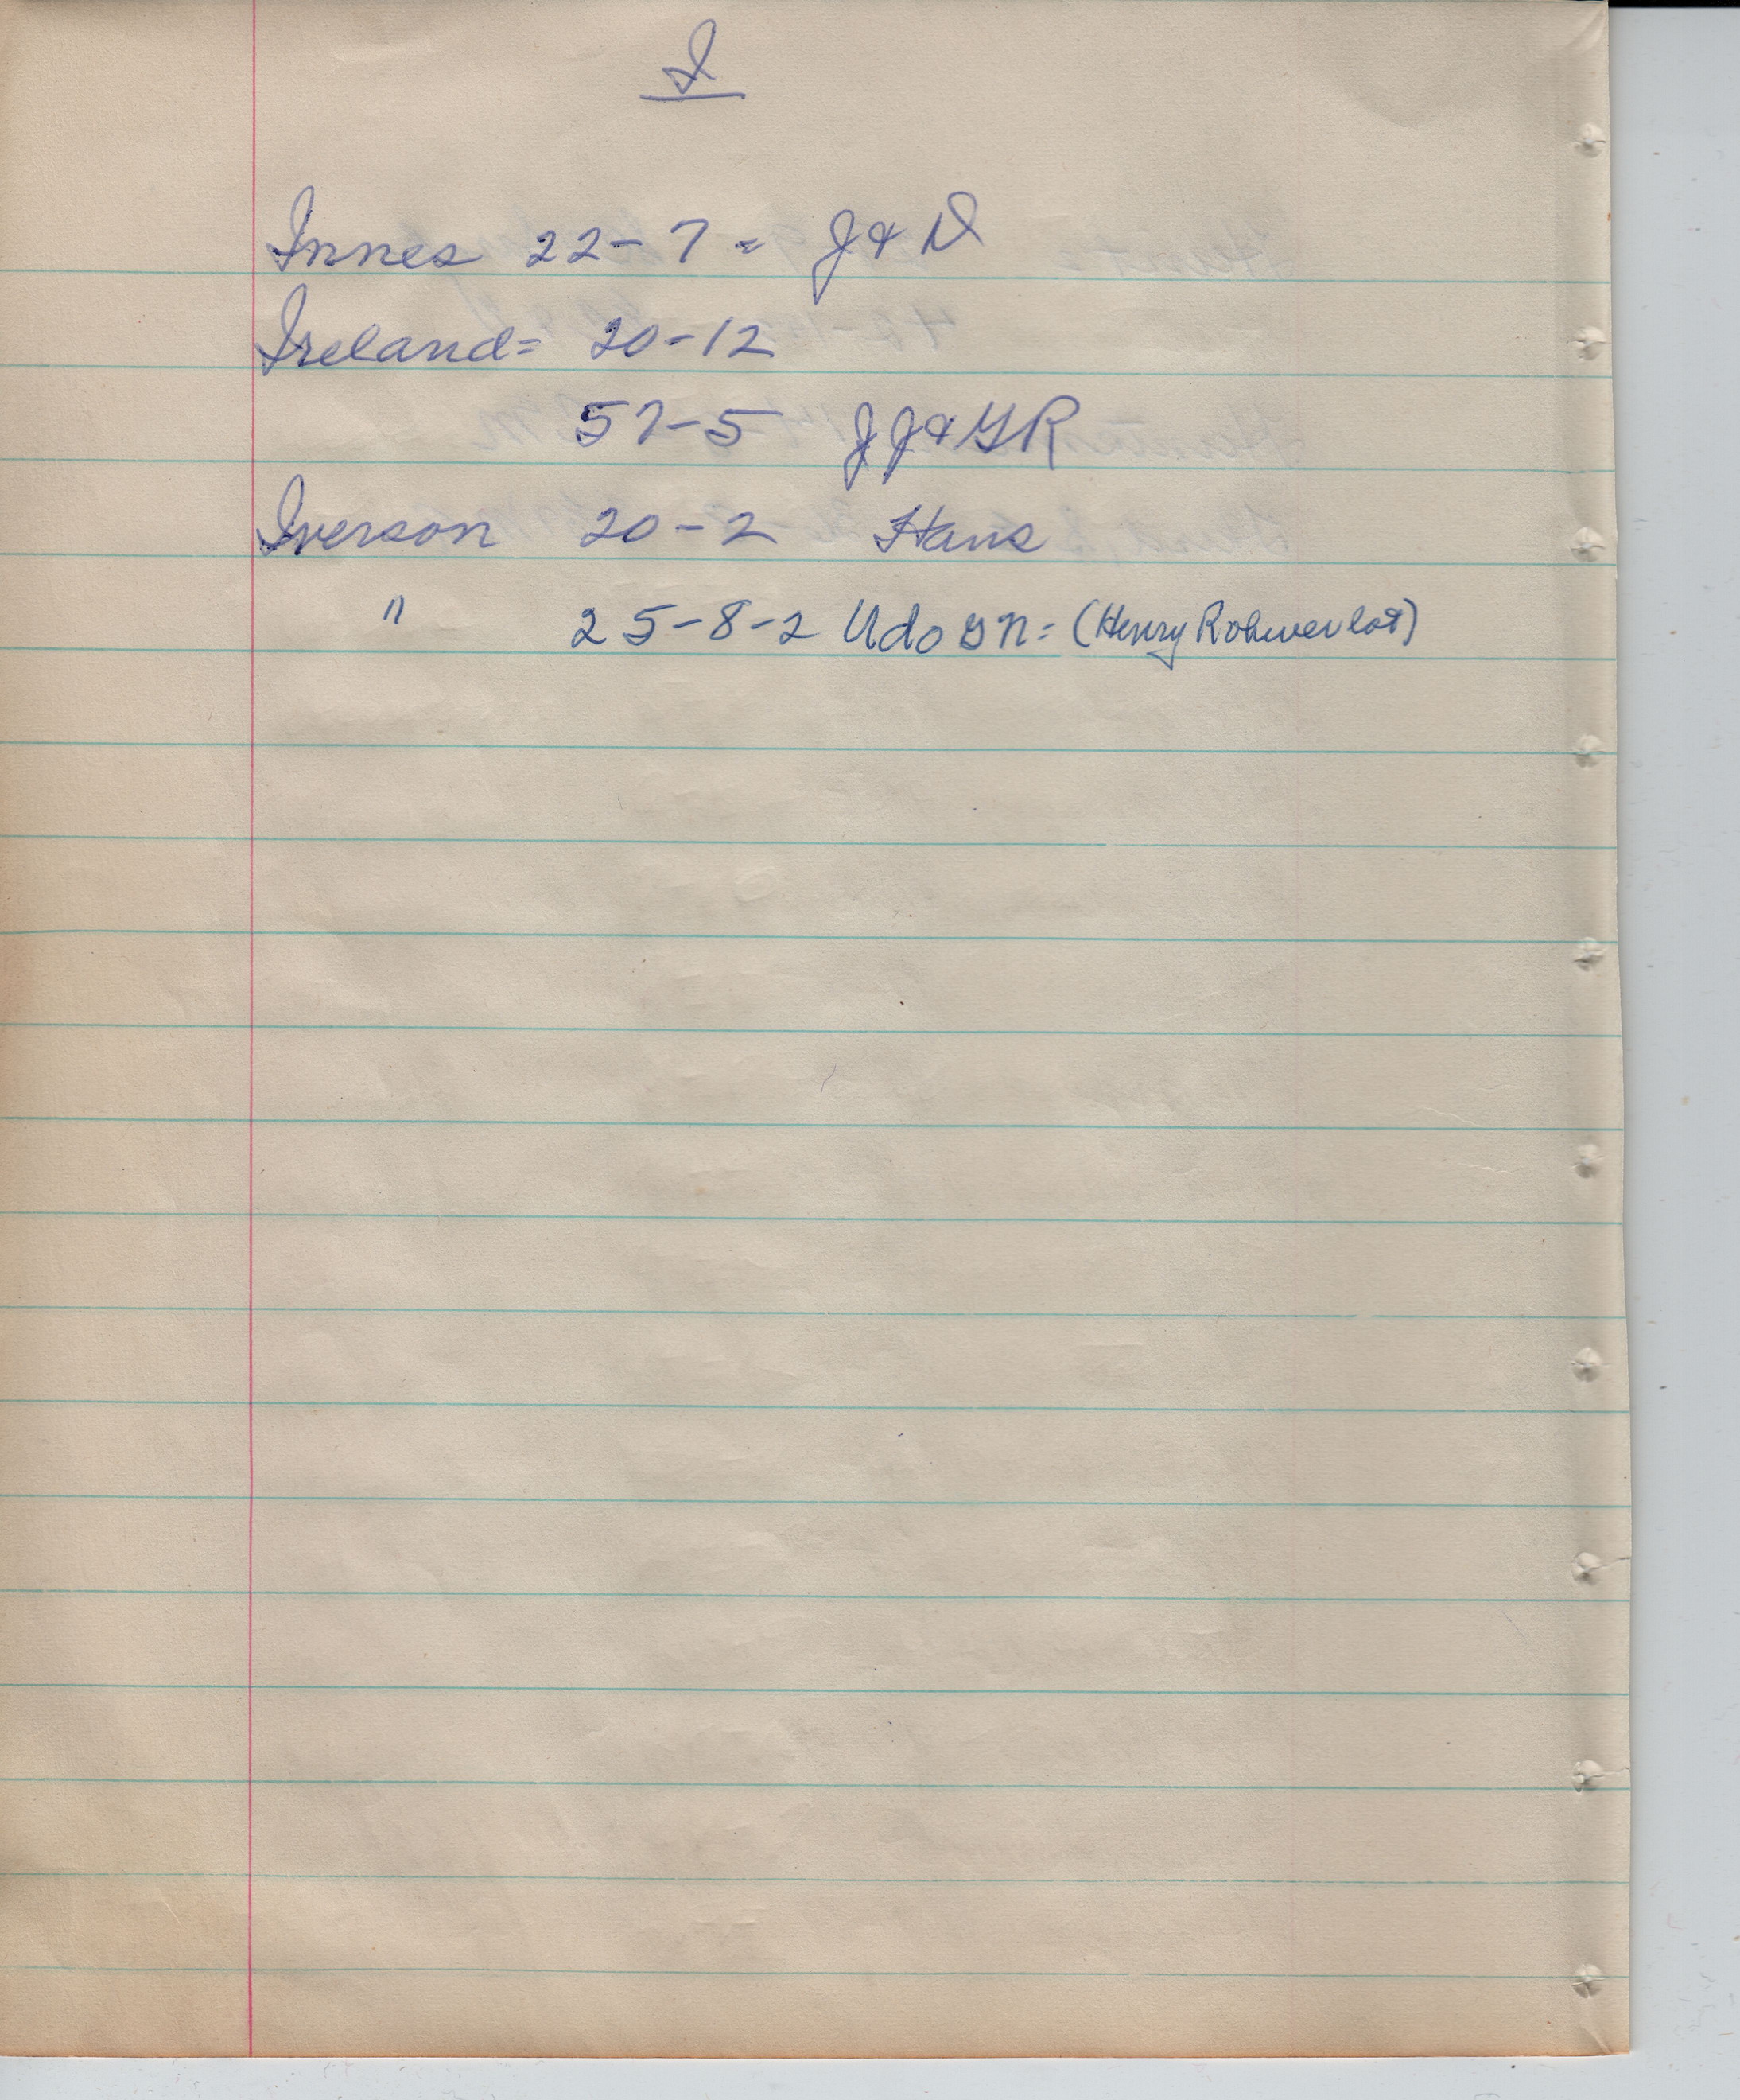 I
Innes 22-7 = J & D
Ireland = 20-12
57-5 J J & G R
Iverson 20-2 Hans
" 25-8-2 Udo G N = (Henry Rohwer lot)